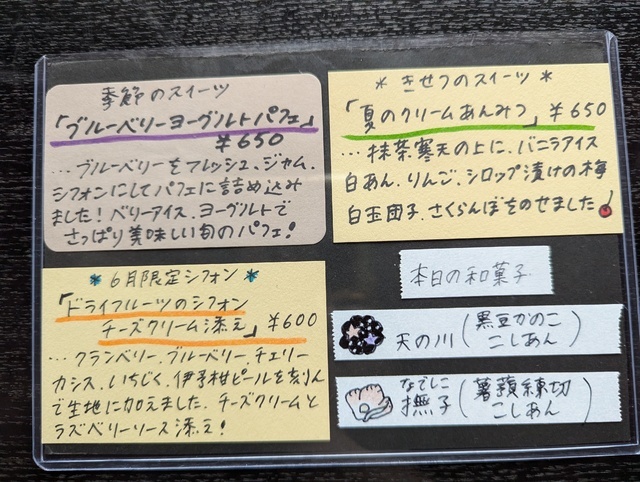 季節のスイーツ
「ブルーベリーヨーグルトパフェ」
¥650
…ブルーベリーをフレッシュ、ジャム、
シフォンにしてパフェに詰め込み
ました！ベリーアイス、ヨーグルトで
さっぱり美味しい旬のパフェ！
＊きせつのスイーツ＊
「夏のクリームあんみつ」¥650
…抹茶寒天の上に、バニラアイス
白あん、りんご、シロップ漬けの梅
白玉団子、さくらんぼをのせました
＊6月限定シフォン＊
「ドライフルーツのシフォン
チーズクリーム添え」¥600
…クランベリー、ブルーベリー、チェリー
カシス、いちじく、伊予柑ピールを刻んで
で生地に加えました。チーズクリームと
ラズベリーソース添え！
本日の和菓子
天の川（黒豆かのこ
こしあん）
なでしこ
撫子（薯蕷練切
こしあん）